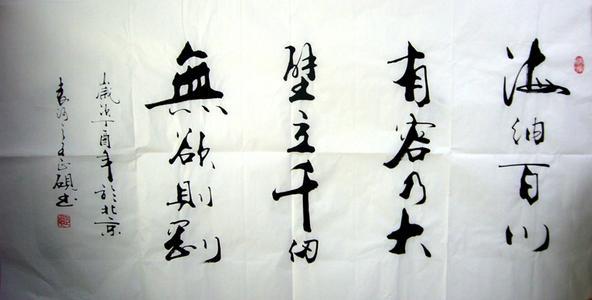 海納百川
有容乃大
壁立千仞
無欲則剛
歲次丁酉年於北京